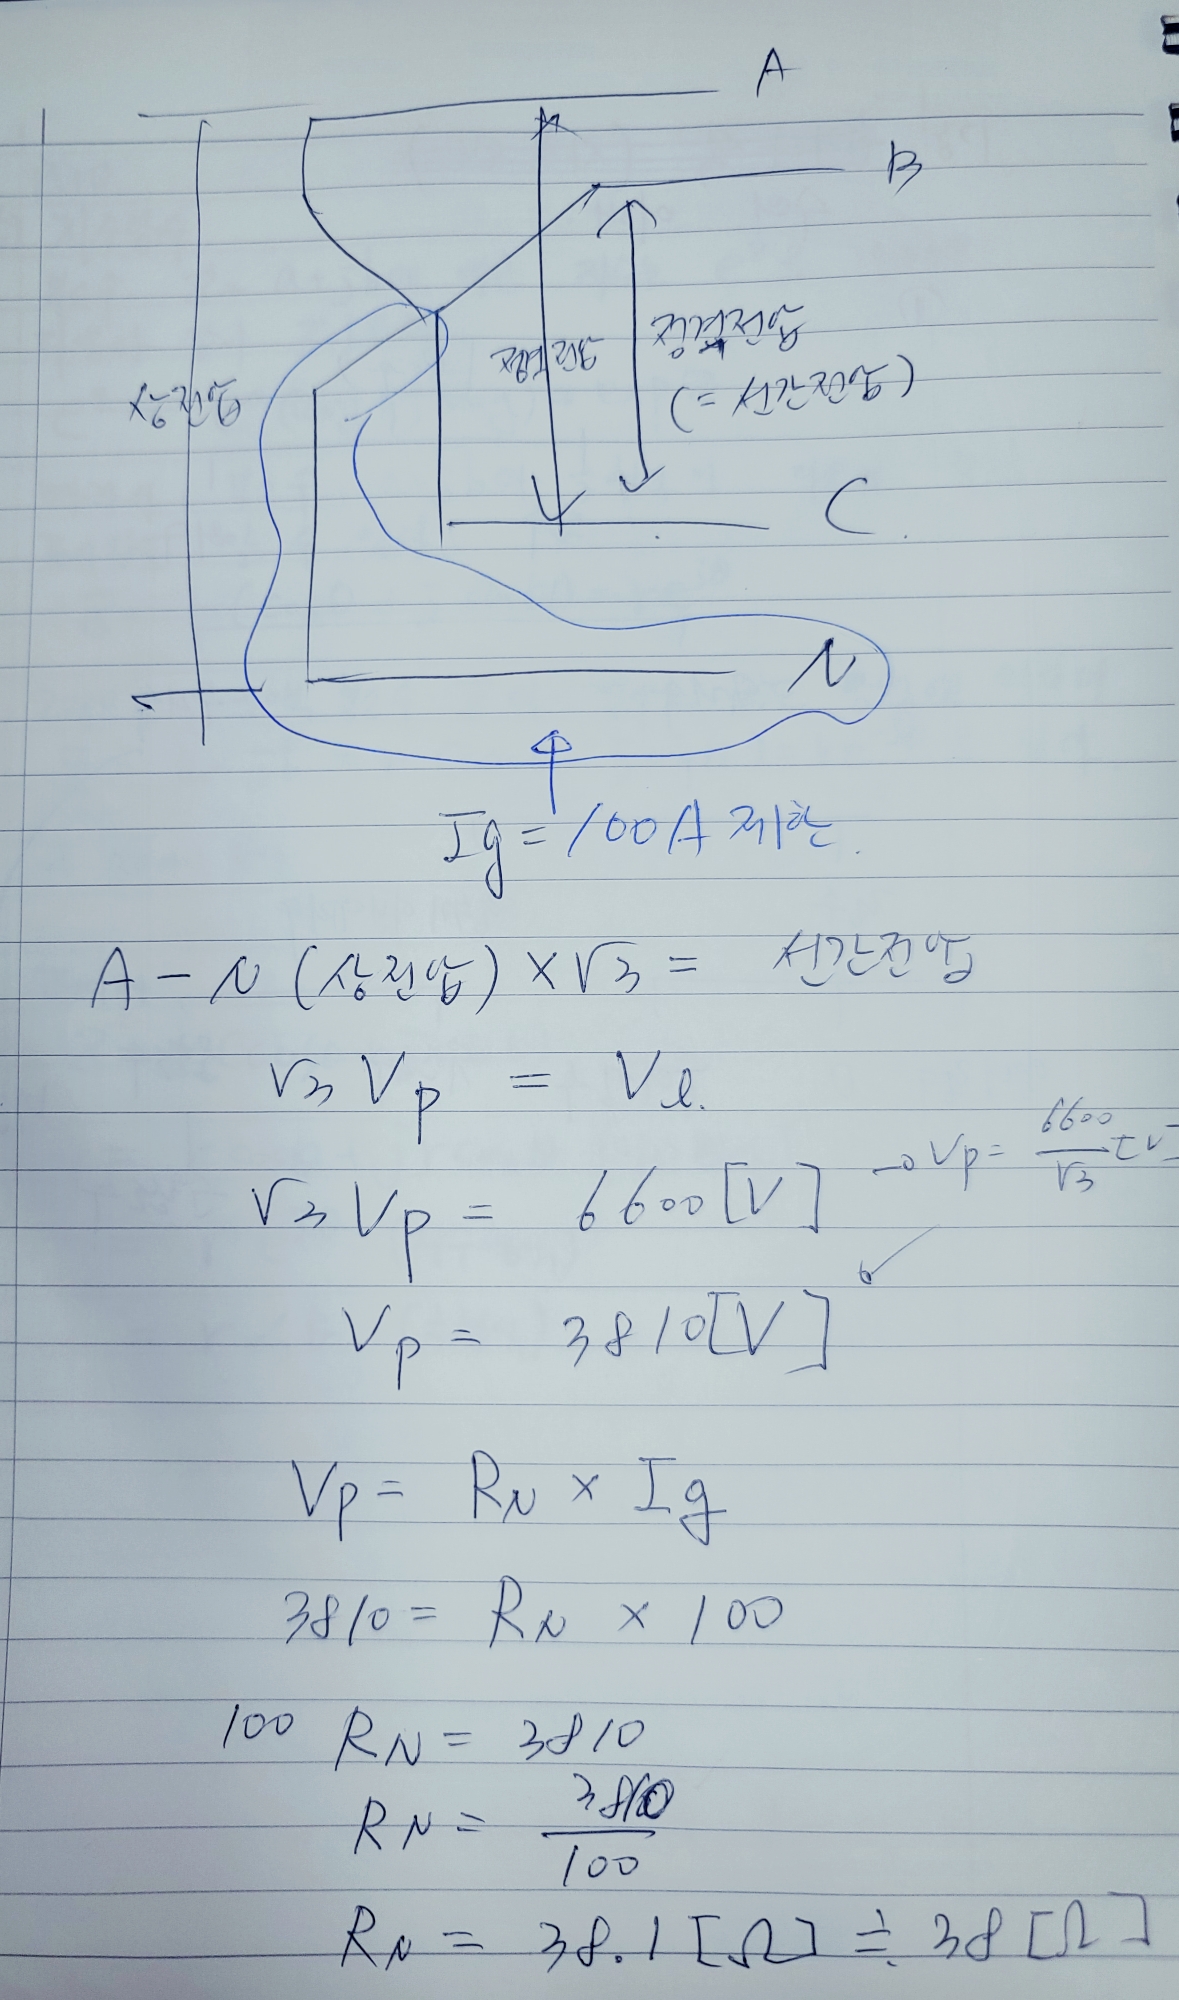 A
B
C
N
Ig = 100A 제한
A - N (상전압) × √3 = 선간전압
√3 Vp = Vl.
√3 Vp = 6600 [V] → Vp = 6600/√3 [V]
Vp = 3810 [V]
Vp = RN × Ig
3810 = RN × 100
100 RN = 3810
RN = 3810/100
RN = 38.1 [Ω] ≒ 38 [Ω]